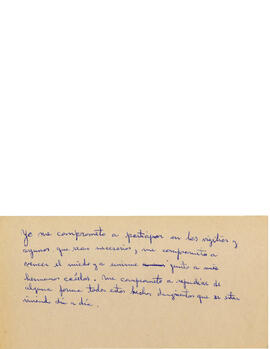 Yo me comprometo a participar en las vigilias y
ayunos que sean necesarios, me comprometo a
vencer el miedo y a unirme junto a mis
hermanos caídos. Me comprometo a repudiar de
alguna forma todos estos hechos que se están
viviendo día a día.